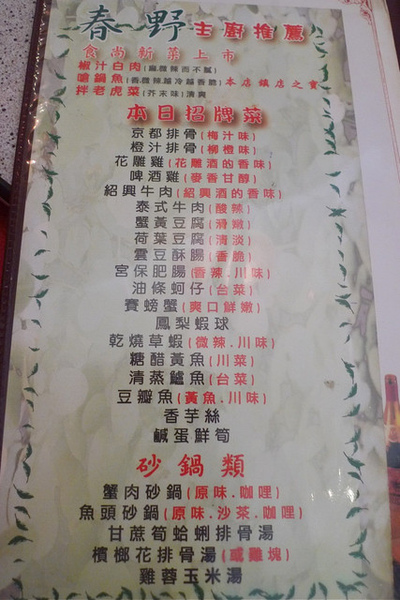 春野主廚推薦
食尚新菜上市
椒汁白肉(麻微辣而不膩)
嗆鍋魚(香微辣越冷越香脆)本店鎮店之寶
拌老虎菜(芥末味)清爽
本日招牌菜
京都排骨(梅汁味)
橙汁排骨(柳橙味)
花雕雞(花雕酒的香味)
啤酒雞(麥香甘醇)
紹興牛肉(紹興酒的香味)
泰式牛肉(酸辣)
蟹黃豆腐(滑嫩)
荷葉豆腐(清淡)
雲豆酥腸(香脆)
宮保肥腸(香辣.川味)
油條蚵仔(台菜)
賽螃蟹(爽口鮮嫩)
鳳梨蝦球
乾燒草蝦(微辣.川味)
糖醋黃魚(川菜)
清蒸鱸魚(台菜)
豆瓣魚(黃魚.川味)
香芋絲
鹹蛋鮮筍
砂鍋類
蟹肉砂鍋(原味.咖哩)
魚頭砂鍋(原味.沙茶.咖哩)
甘蔗筍蛤蜊排骨湯
檳榔花排骨湯(或雞塊)
雞蓉玉米湯